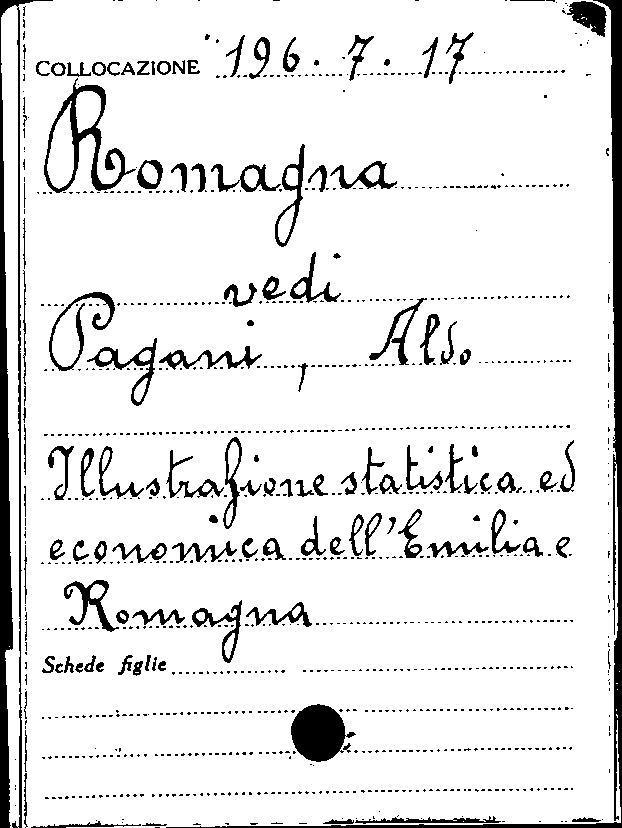 COLLOCAZIONE 196. 7. 17
Romagna
vedi
Pagani, Aldo
Illustrazione statistica ed
economica dell'Emilia e
Romagna
Schede figlie